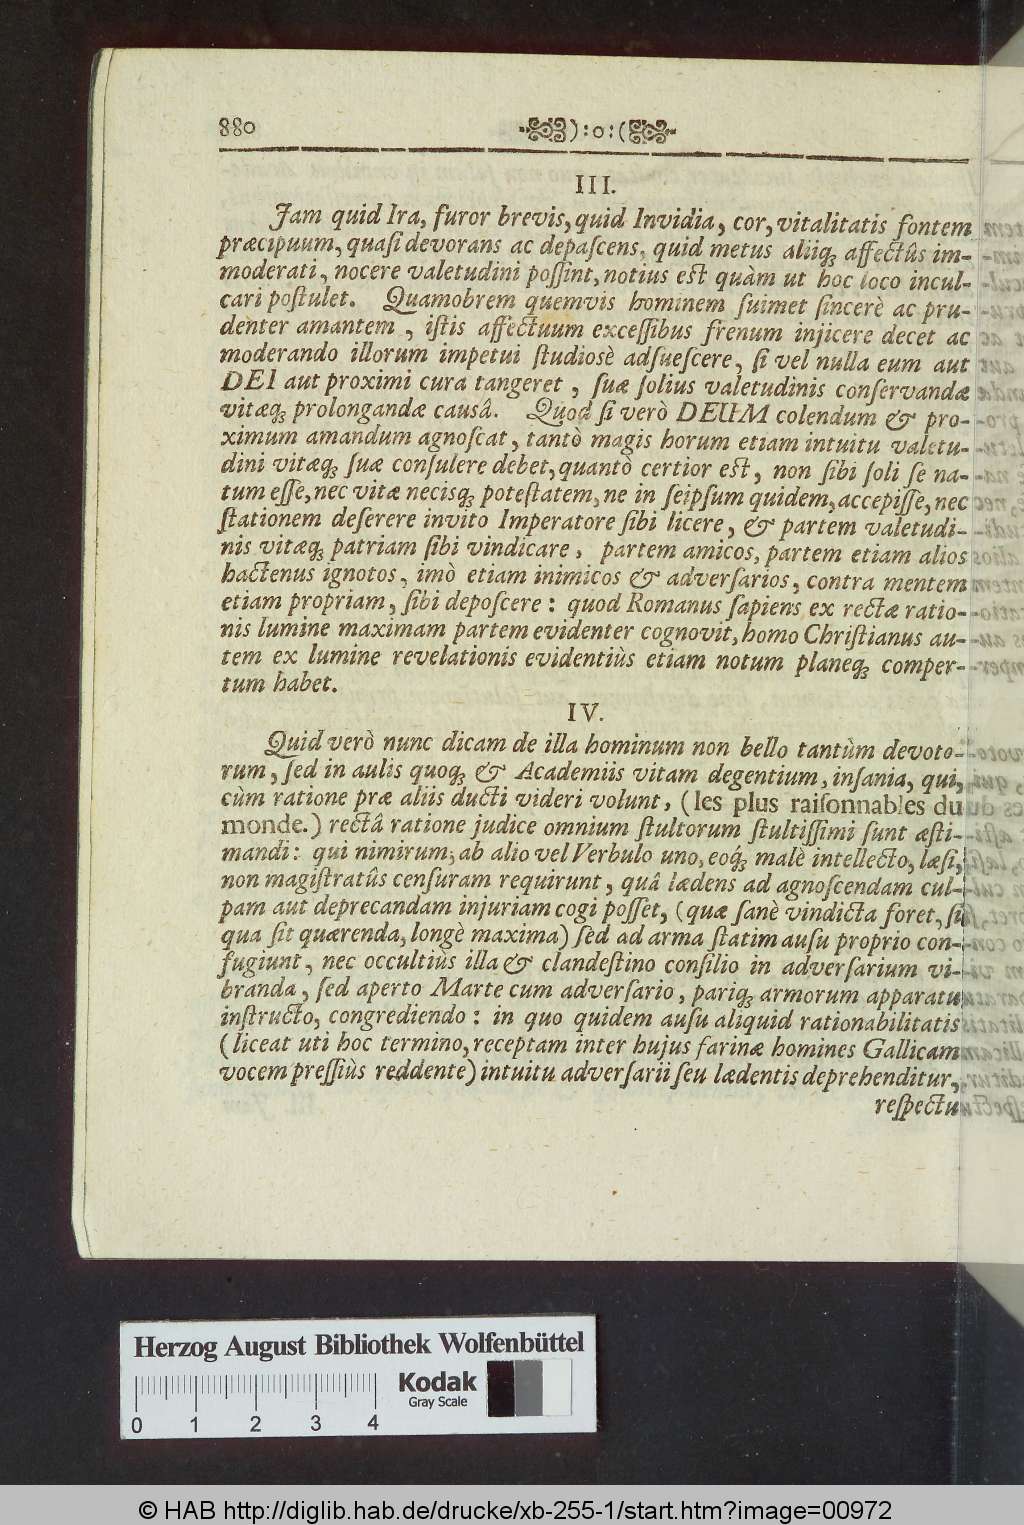 880 ):o:(
III.
Jam quid Ira, furor brevis, quid Invidia, cor, vitalitatis fontem
præcipuum, quaſi devorans ac depaſcens, quid metus aliiq́; affectûs im-
moderati, nocere valetudini poſſint, notius eſt quàm ut hoc loco incul-
cari poſtulet. Quamobrem quemvis hominem ſuimet ſincerè ac pru-
denter amantem, iſtis affectuum exceſſibus frenum injicere decet ac
moderando illorum impetui ſtudiosè adſueſcere, ſi vel nulla eum aut
DEI aut proximi cura tangeret, ſuæ ſolius valetudinis conſervandæ
vitæq; prolongandæ causâ. Quod ſi verò DEUM colendum & pro-
ximum amandum agnoſcat, tantò magis horum etiam intuitu valetu-
dini vitæq; ſuæ conſulere debet, quantò certior eſt, non ſibi ſoli ſe na-
tum eſſe, nec vitæ necisq; poteſtatem, ne in ſeipſum quidem, accepiſſe, nec
ſtationem deſerere invito Imperatore ſibi licere, & partem valetudi-
nis vitæq; patriam ſibi vindicare, partem amicos, partem etiam alios
hactenus ignotos, imò etiam inimicos & adverſarios, contra mentem
etiam propriam, ſibi depoſcere: quod Romanus ſapiens ex rectæ ratio-
nis lumine maximam partem evidenter cognovit, homo Chriſtianus au-
tem ex lumine revelationis evidentiùs etiam notum planeq; comper-
tum habet.
IV.
Quid verò nunc dicam de illa hominum non bello tantùm devoto-
rum, ſed in aulis quoq; & Academiis vitam degentium, inſania, qui,
cùm ratione præ aliis ducti videri volunt, (les plus raiſonnables du
monde.) rectâ ratione judice omnium ſtultorum ſtultiſſimi ſunt æſti-
mandi: qui nimirum, ab alio vel Verbulo uno, eoq́; malè intellecto, læſi,
non magiſtratûs cenſuram requirunt, quâ lædens ad agnoſcendam cul-
pam aut deprecandam injuriam cogi poſſet, (quæ ſanè vindicta foret, ſi
qua ſit quærenda, longè maxima) ſed ad arma ſtatim auſu proprio con-
fugiunt, nec occultiùs illa & clandeſtino conſilio in adverſarium vi-
branda, ſed aperto Marte cum adverſario, pariq; armorum apparatu
inſtructo, congrediendo: in quo quidem auſu aliquid rationabilitatis
(liceat uti hoc termino, receptam inter hujus farinæ homines Gallicam
vocem preſſiùs reddente) intuitu adverſarii ſeu lædentis deprehenditur,
reſpectu
Herzog August Bibliothek Wolfenbüttel
Kodak
Gray Scale
0 1 2 3 4
© HAB http://diglib.hab.de/drucke/xb-255-1/start.htm?image=00972